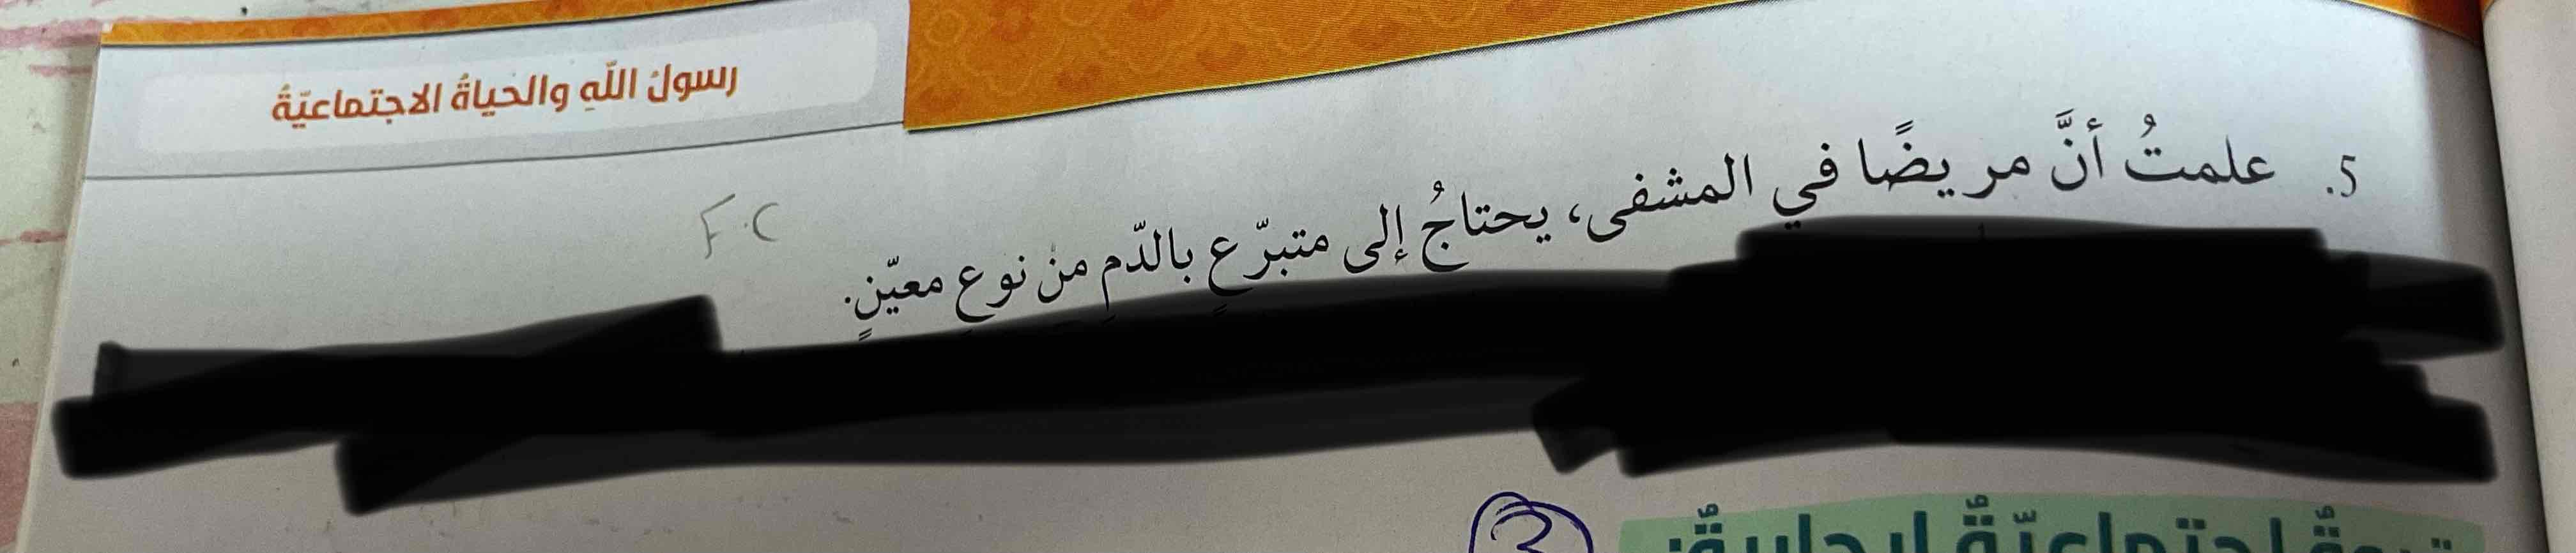 رسولُ اللّهِ والحياةُ الاجتماعيّةُ
5. علمتُ أنَّ مريضًا في المشفى، يحتاجُ إلى متبرّعٍ بالدّمِ منْ نوعٍ معيّنٍ.
3